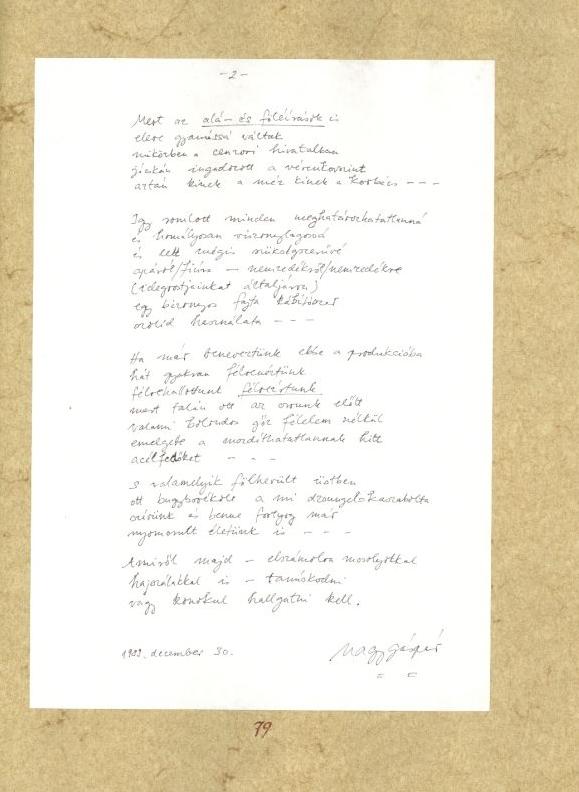 -2-
Mert az alá- és föléírások is
eleve gyanússá váltak
miközben a cenzori hivatalban
ingadozott a vércukorszint
aztán kinek a méz kinek a korbács - - -
Így romlott minden meghatározhatatlanná
és homályosan viszonylagossá
és lett mégis szükségszerűvé
apáról/fiúra - nemzedékről/nemzedékre
(idegrostjainkat általjáróan)
egy bizonyos fajta kábítószer
orvlod használata - - -
Ha már beneveztünk ebbe a produkcióba
hát gyakran félrenéztünk
félrehallottunk félreírtunk
mert talán ott az orrunk előtt
valami bolondos gőz félelem nélkül
emelgete a mozdíthatatlannak hitt
acélfedőket - - -
s valamelyik fölhevült üstben
ott bugyborékolt a mi dzsungel-kaszabolta
szívünk és benne fortyog már
nyomorult életünk is - - -
Amiről majd - elszámolva mosolyokkal
hajszálakkal is - tanúskodni
vagy konokul hallgatni kell.
1983. december 30.
Nagy Gáspár
79